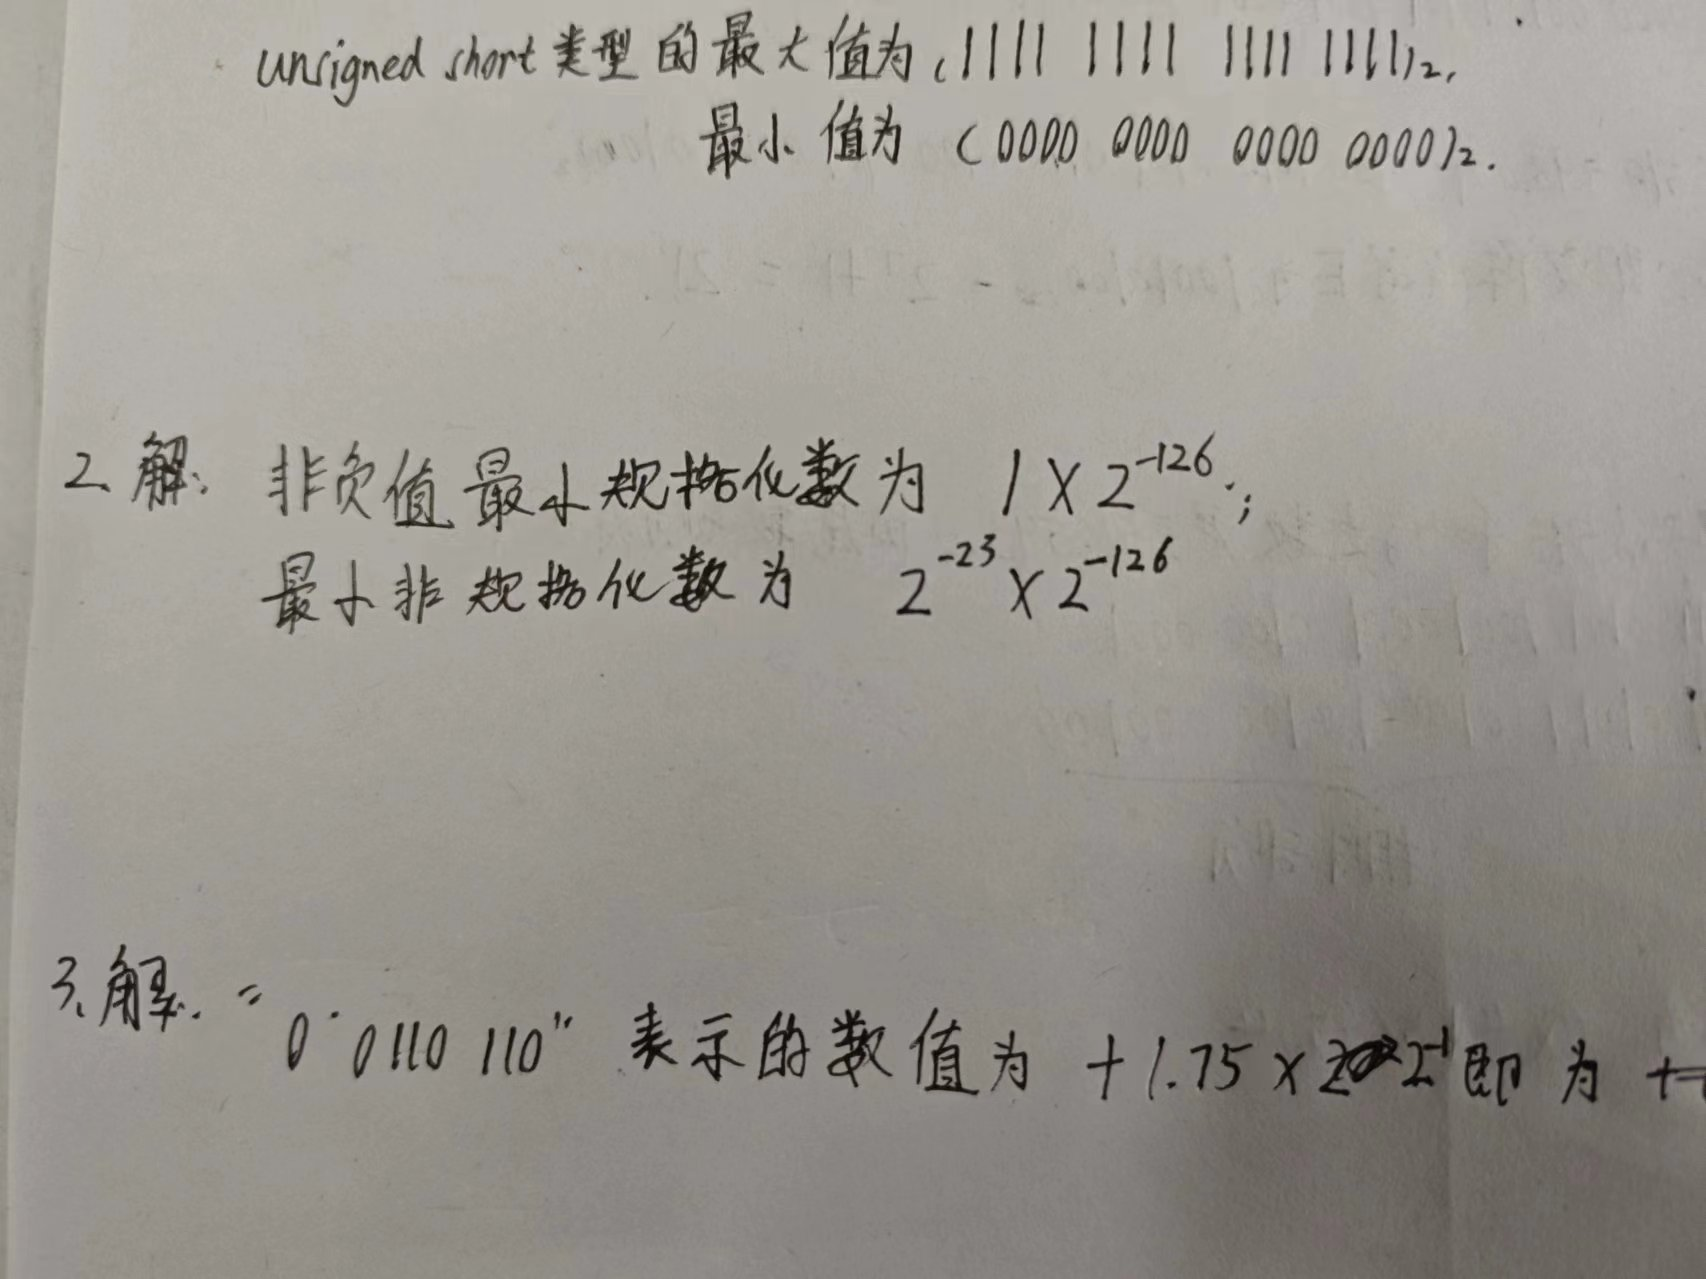 unsigned short 类型的最大值为(1111 1111 1111 1111)2,
最小值为 (0000 0000 0000 0000)2.
2、解: 非负值最小规格化数为 1×2^-126;
最小非规格化数为 2^-23×2^-126
3、解: "0 0110 110" 表示的数值为 +1.75×2^-1即为 +